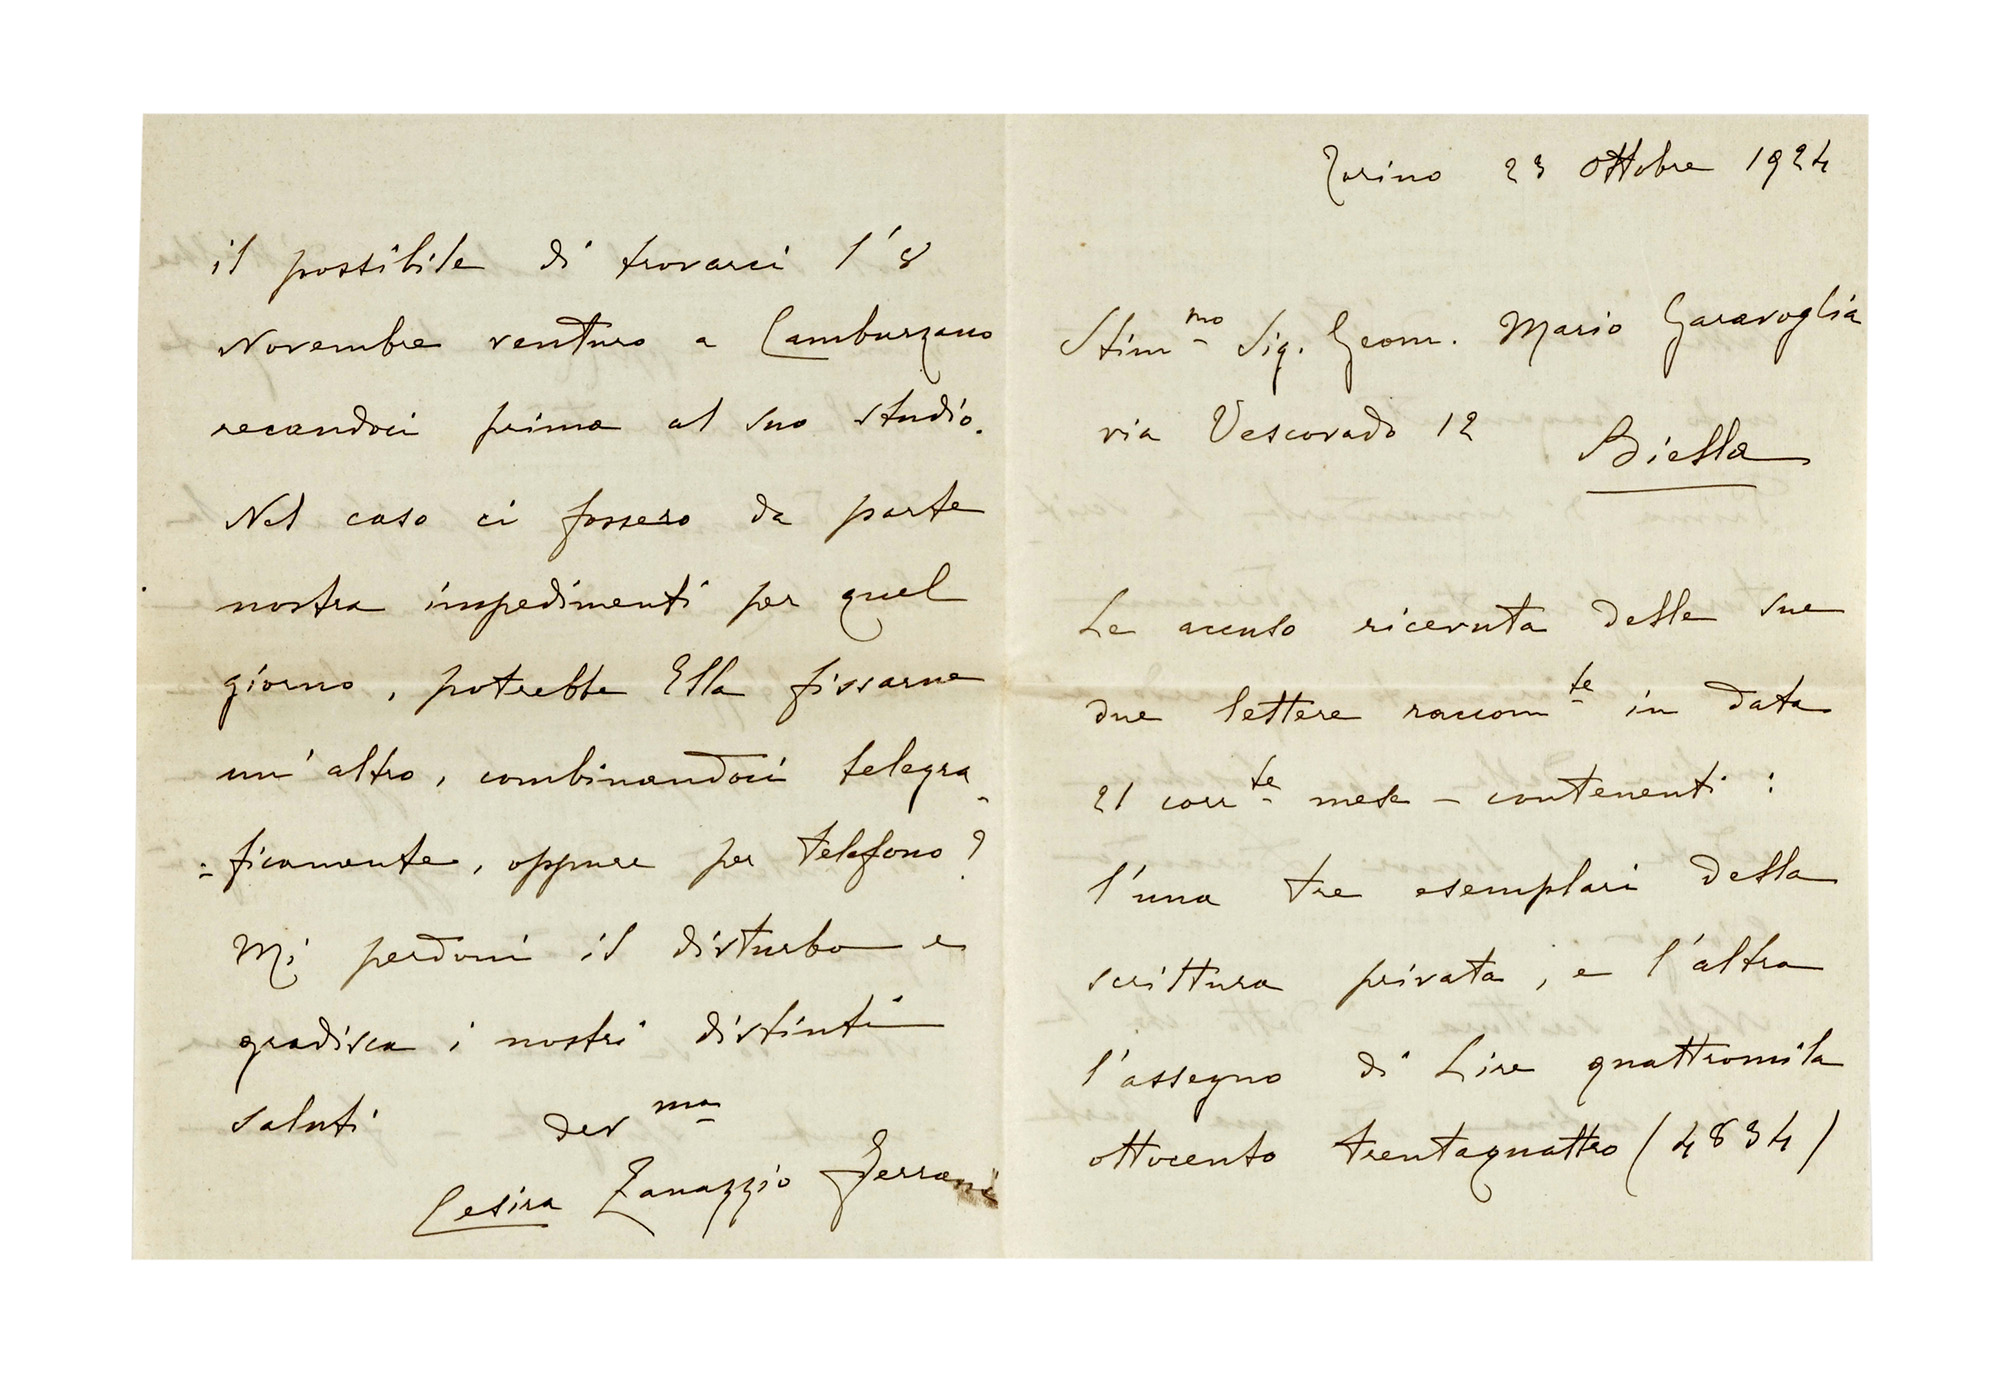 Torino 23 Ottobre 1924
Stim.mo Sig. Geom. Mario Garavoglia
via Vescovado 12 Biella
Le accuso ricevuta delle sue
due lettere raccom.te in data
21 corr.te mese - contenenti :
l'una tre esemplari della
scrittura privata, e l'altra
l'assegno di Lire quattromila
ottocento trentaquattro (4834)
il possibile di trovarci l'8
Novembre venturo a Camburzano
recandoci prima al suo studio.
Nel caso ci fossero da parte
nostra impedimenti per quel
giorno, potrebbe Ella fissarne
un'altro, combinandoci telegra
=ficamente, oppure per telefono?
Mi perdoni il disturbo e
gradisca i nostri distinti
saluti dev.ma
Cesira Zanazzio Ferrani